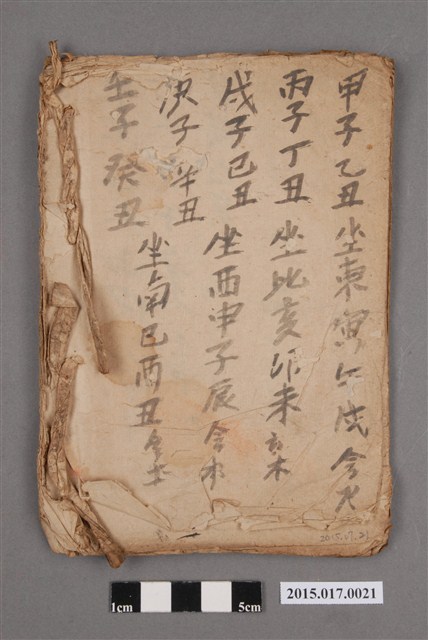 甲子乙丑坐東寅午戌合火
丙子丁丑坐北亥卯未合木
戊子己丑坐西申子辰合水
庚子辛丑坐南巳酉丑合金
壬子癸丑
2015.017.21
1cm
5cm
2015.017.0021